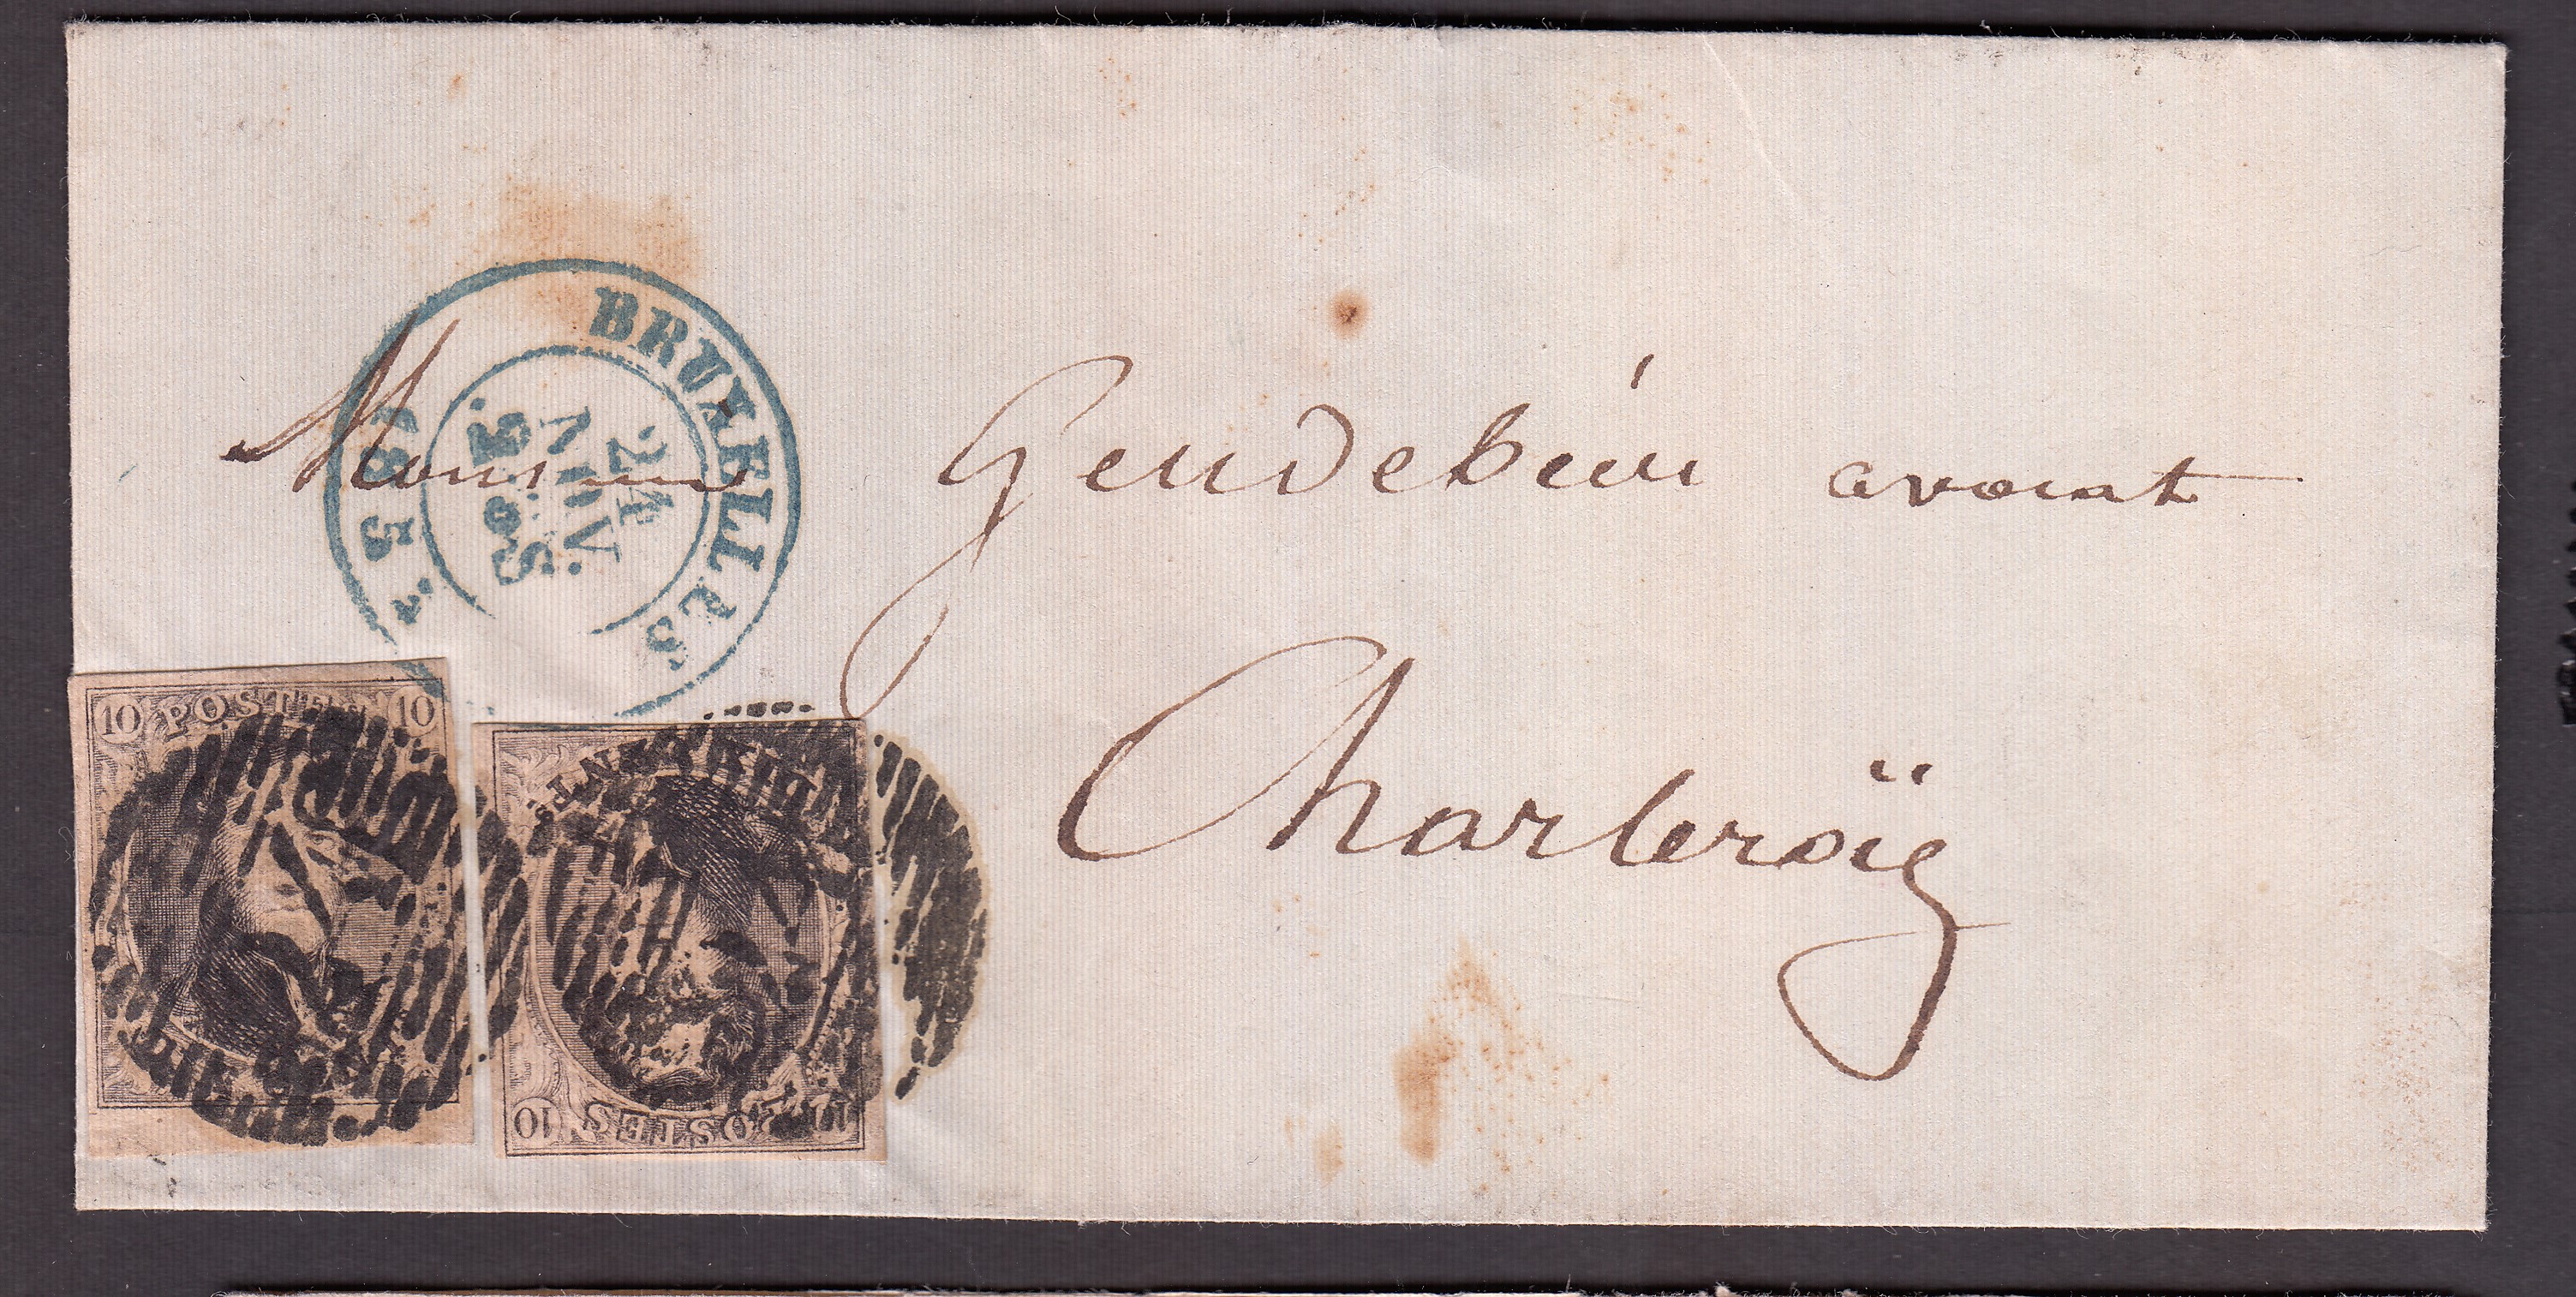 BRUXELLES
24
NOV.
S. 8
185
Monsieur Gendebien avocat
Charleroÿ
10 POSTES 10
10 POSTES